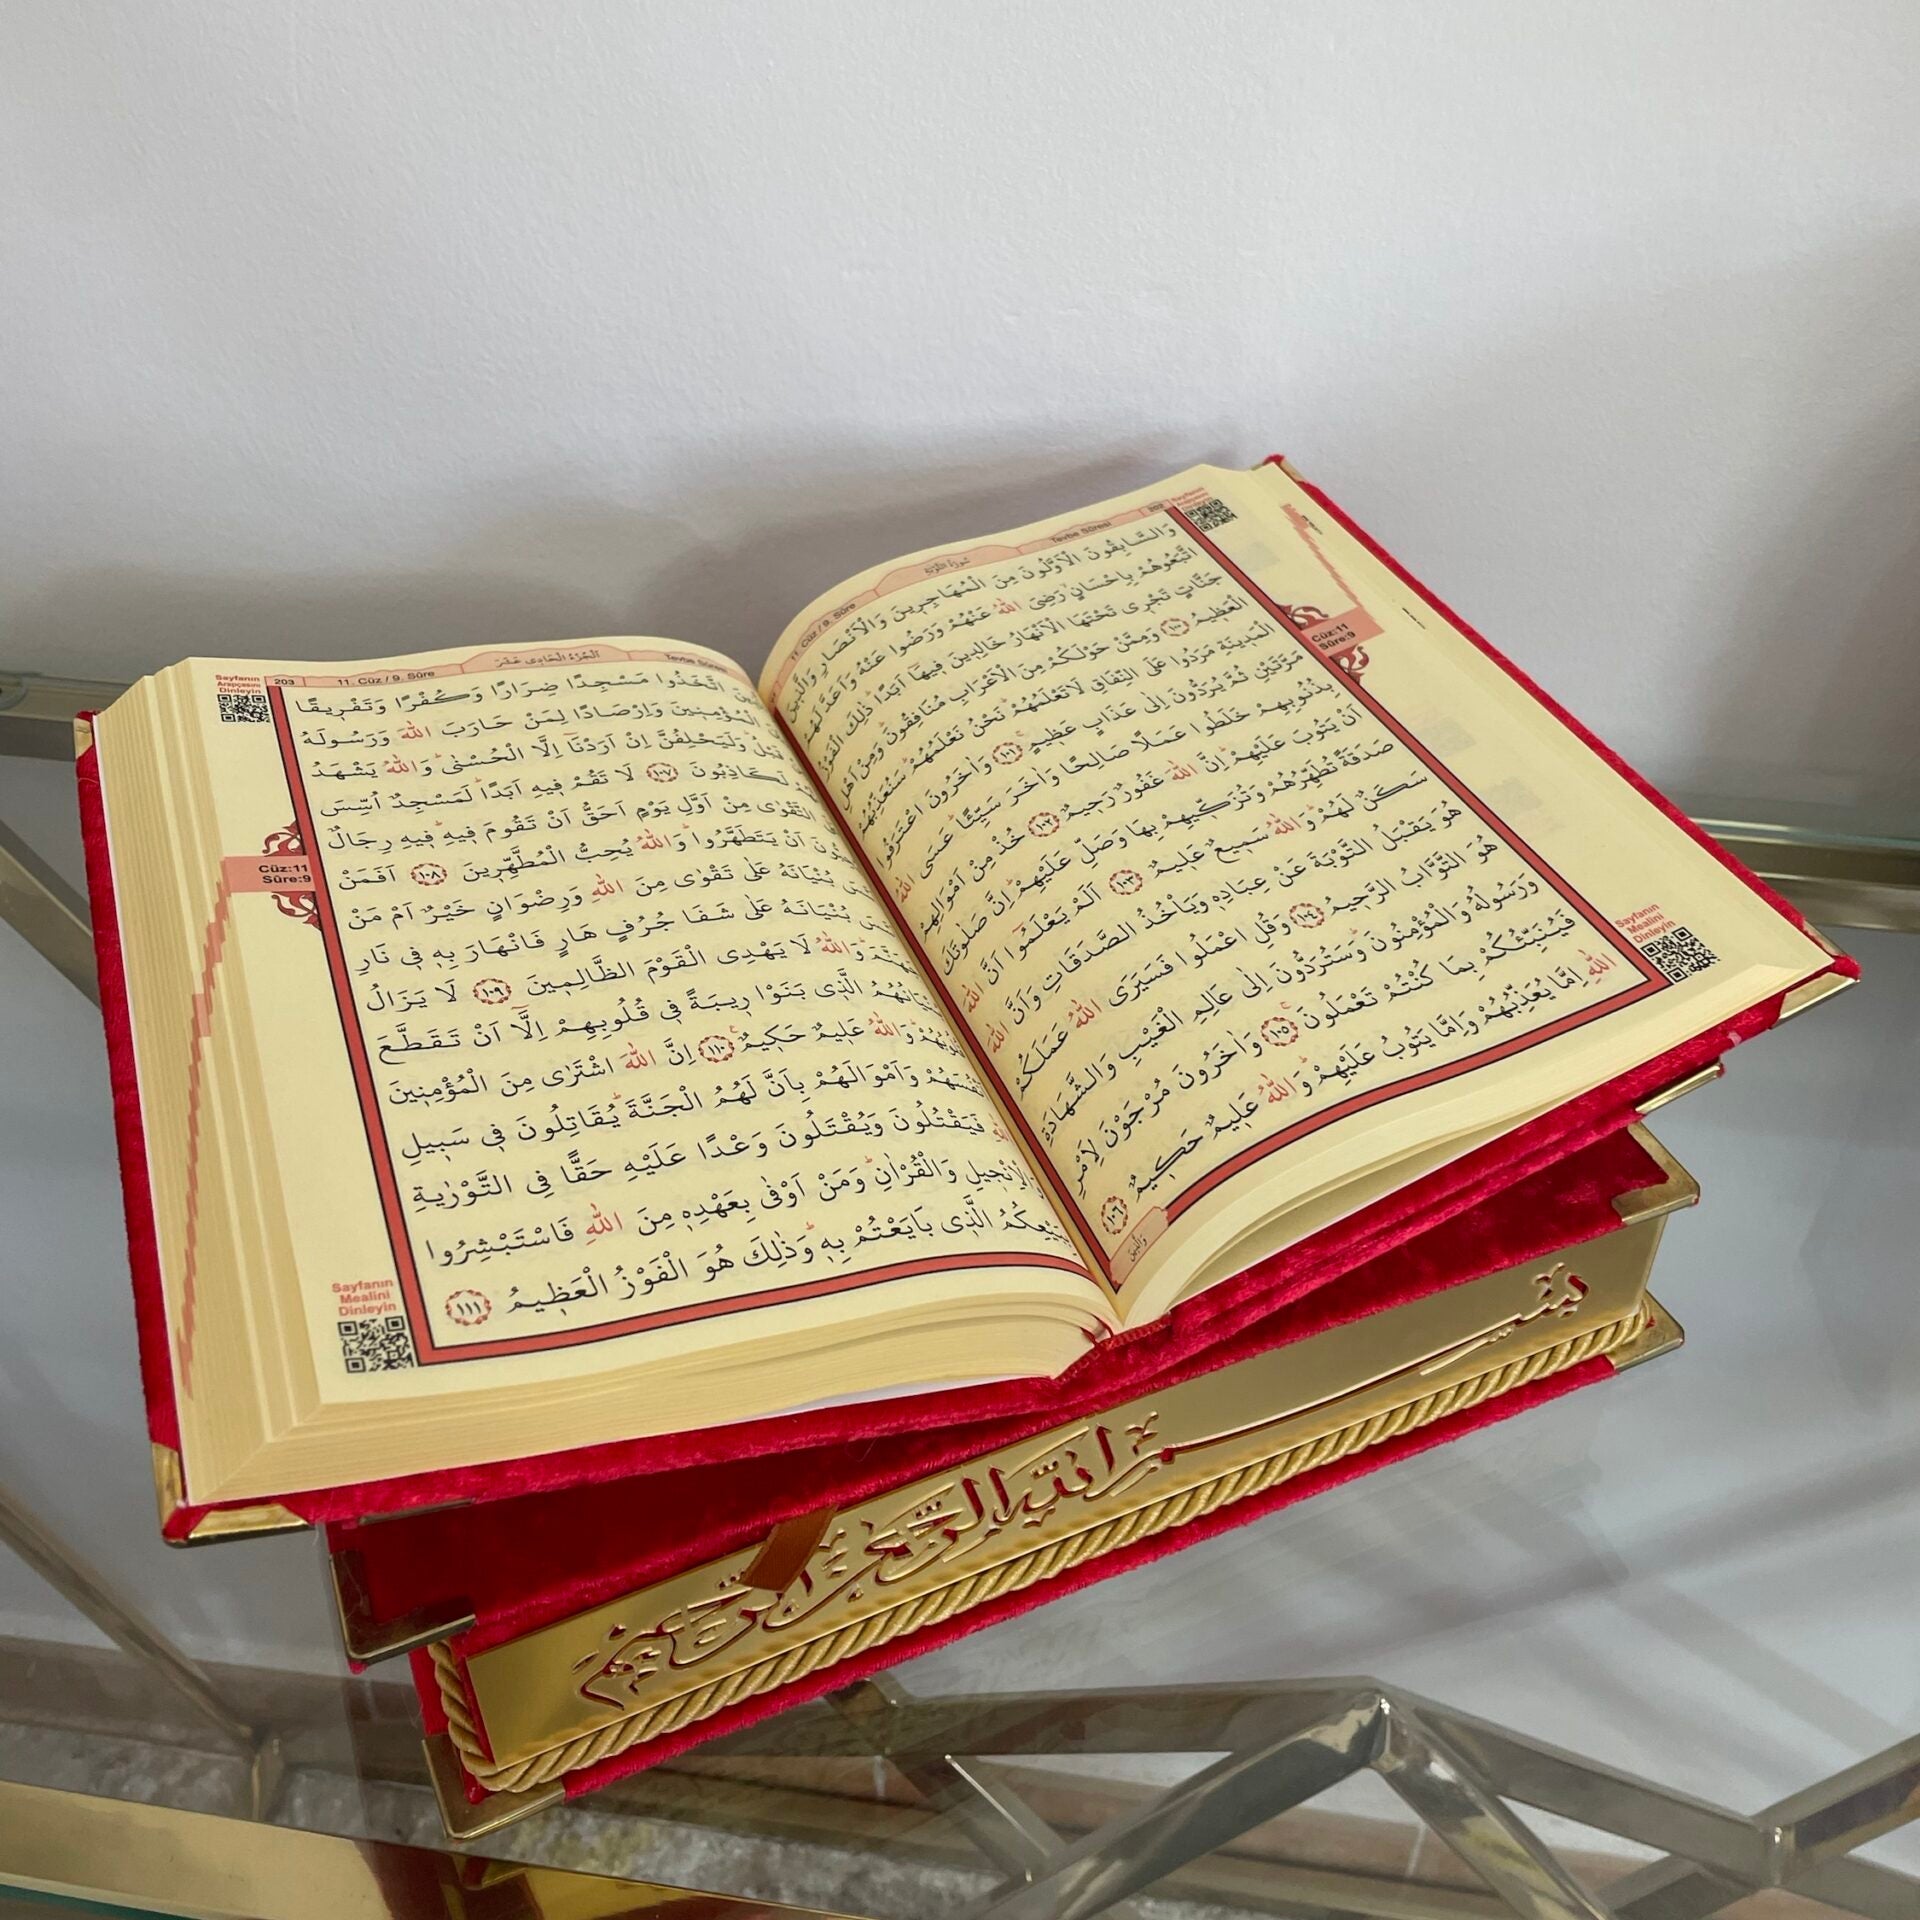 11. Cüz / 9. Sûre
Tevbe Sûresi
202
وَالسَّابِقُونَ الْاَوَّلُونَ مِنَ الْمُهَاجِرِينَ وَالْاَنْصَارِ وَالَّذِينَ
اتَّبَعُوهُمْ بِاِحْسَانٍ رَضِىَ اللّٰهُ عَنْهُمْ وَرَضُوا عَنْهُ وَاَعَدَّ لَهُمْ
جَنَّاتٍ تَجْرِى تَحْتَهَا الْاَنْهَارُ خَالِدِينَ فِيهَا اَبَدًا ذٰلِكَ الْفَوْزُ
الْعَظِيمُ ١٠٠ وَمِمَّنْ حَوْلَكُمْ مِنَ الْاَعْرَابِ مُنَافِقُونَ وَمِنْ اَهْلِ
الْمَدِينَةِ مَرَدُوا عَلَى النِّفَاقِ لَا تَعْلَمُهُمْ نَحْنُ نَعْلَمُهُمْ سَنُعَذِّبُهُمْ
مَرَّتَيْنِ ثُمَّ يُرَدُّونَ اِلٰى عَذَابٍ عَظِيمٍ ١٠١ وَاٰخَرُونَ اعْتَرَفُوا
بِذُنُوبِهِمْ خَلَطُوا عَمَلًا صَالِحًا وَاٰخَرَ سَيِّئًا عَسَى اللّٰهُ
اَنْ يَتُوبَ عَلَيْهِمْ اِنَّ اللّٰهَ غَفُورٌ رَحِيمٌ ١٠٢ خُذْ مِنْ اَمْوَالِهِمْ
صَدَقَةً تُطَهِّرُهُمْ وَتُزَكِّيهِمْ بِهَا وَصَلِّ عَلَيْهِمْ اِنَّ صَلٰوتَكَ
سَكَنٌ لَهُمْ وَاللّٰهُ سَمِيعٌ عَلِيمٌ ١٠٣ اَلَمْ يَعْلَمُوا اَنَّ اللّٰهَ
هُوَ يَقْبَلُ التَّوْبَةَ عَنْ عِبَادِهِ وَيَأْخُذُ الصَّدَقَاتِ وَاَنَّ اللّٰهَ
هُوَ التَّوَّابُ الرَّحِيمُ ١٠٤ وَقُلِ اعْمَلُوا فَسَيَرَى اللّٰهُ عَمَلَكُمْ
وَرَسُولُهُ وَالْمُؤْمِنُونَ وَسَتُرَدُّونَ اِلٰى عَالِمِ الْغَيْبِ وَالشَّهَادَةِ
فَيُنَبِّئُكُمْ بِمَا كُنْتُمْ تَعْمَلُونَ ١٠٥ وَاٰخَرُونَ مُرْجَوْنَ لِاَمْرِ
اللّٰهِ اِمَّا يُعَذِّبُهُمْ وَاِمَّا يَتُوبُ عَلَيْهِمْ وَاللّٰهُ عَلِيمٌ حَكِيمٌ ١٠٦
Cüz:11
Sûre:9
Sayfanın
Mealini
Dinleyin
Sayfanın
Arapçasını
Dinleyin
203
11. Cüz / 9. Sûre
اَلْجُزْءُ الْحَادِى عَشَرَ
Tevbe Sûresi
اتَّخَذُوا مَسْجِدًا ضِرَارًا وَكُفْرًا وَتَفْرِيقًا
الْمُؤْمِنِينَ وَاِرْصَادًا لِمَنْ حَارَبَ اللّٰهَ وَرَسُولَهُ
قَبْلُ وَلَيَحْلِفُنَّ اِنْ اَرَدْنَا اِلَّا الْحُسْنٰى وَاللّٰهُ يَشْهَدُ
لَكَاذِبُونَ ١٠٧ لَا تَقُمْ فِيهِ اَبَدًا لَمَسْجِدٌ اُسِّسَ
التَّقْوٰى مِنْ اَوَّلِ يَوْمٍ اَحَقُّ اَنْ تَقُومَ فِيهِ فِيهِ رِجَالٌ
اَنْ يَتَطَهَّرُوا وَاللّٰهُ يُحِبُّ الْمُطَّهِّرِينَ ١٠٨ اَفَمَنْ
بُنْيَانَهُ عَلٰى تَقْوٰى مِنَ اللّٰهِ وَرِضْوَانٍ خَيْرٌ اَمْ مَنْ
بُنْيَانَهُ عَلٰى شَفَا جُرُفٍ هَارٍ فَانْهَارَ بِهِ فِى نَارِ
وَاللّٰهُ لَا يَهْدِى الْقَوْمَ الظَّالِمِينَ ١٠٩ لَا يَزَالُ
بُنْيَانُهُمُ الَّذِى بَنَوْا رِيبَةً فِى قُلُوبِهِمْ اِلَّا اَنْ تَقَطَّعَ
وَاللّٰهُ عَلِيمٌ حَكِيمٌ ١١٠ اِنَّ اللّٰهَ اشْتَرٰى مِنَ الْمُؤْمِنِينَ
وَاَمْوَالَهُمْ بِاَنَّ لَهُمُ الْجَنَّةَ يُقَاتِلُونَ فِى سَبِيلِ
اللّٰهِ فَيَقْتُلُونَ وَيُقْتَلُونَ وَعْدًا عَلَيْهِ حَقًّا فِى التَّوْرٰيةِ
وَالْاِنْجِيلِ وَالْقُرْاٰنِ وَمَنْ اَوْفٰى بِعَهْدِهِ مِنَ اللّٰهِ فَاسْتَبْشِرُوا
بِبَيْعِكُمُ الَّذِى بَايَعْتُمْ بِهِ وَذٰلِكَ هُوَ الْفَوْزُ الْعَظِيمُ ١١١
Cüz:11
Sûre:9
Sayfanın
Mealini
Dinleyin
بِسْمِ اللّٰهِ الرَّحْمٰنِ الرَّحِيمِ